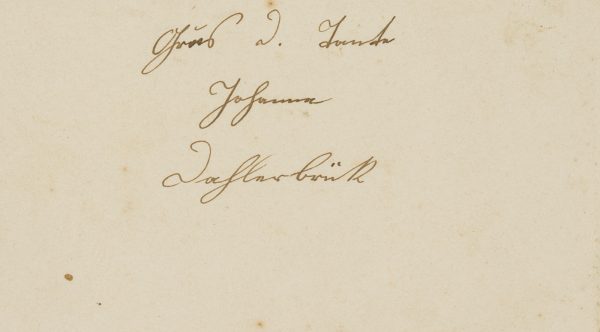 Grus d. Tante
Johanna
Dahlerbrük